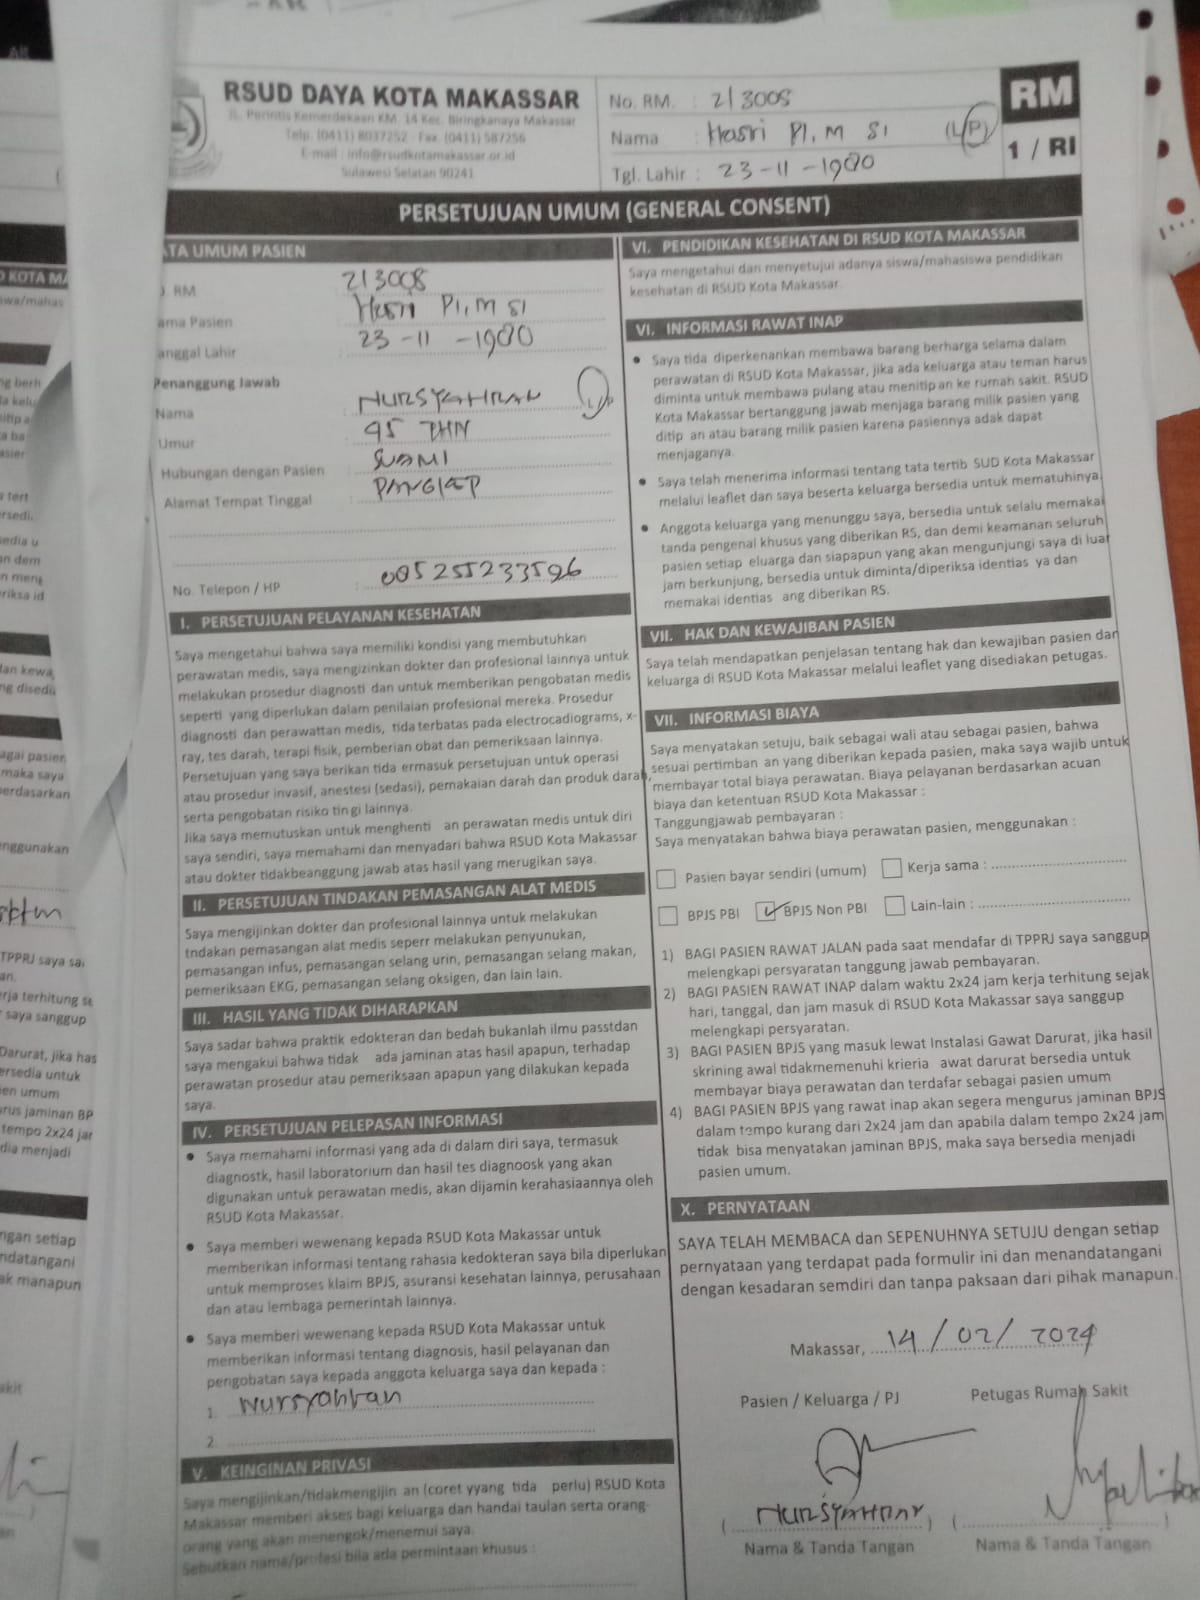 RSUD DAYA KOTA MAKASSAR
JL. Perintis Kemerdekaan KM. 14 Kec. Biringkanaya Makassar
Telp. (0411) 8037252 - Fax. (0411) 587256
E-mail : info@rsudkotamakassar.or.id
Sulawesi Selatan 90241
No. RM. : 213008
Nama : Hasri PI, M SI (L/P)
Tgl. Lahir : 23-11-1980
RM
1 / RI
PERSETUJUAN UMUM (GENERAL CONSENT)
TA UMUM PASIEN
RM 213008
ama Pasien : Hasri PI, M SI
anggal Lahir : 23-11-1980
Penanggung Jawab
Nama : NURSYAHRAN
Umur : 45 THN
Hubungan dengan Pasien : SUAMI
Alamat Tempat Tinggal : PANGKEP
No. Telepon / HP : 085255233596
I. PERSETUJUAN PELAYANAN KESEHATAN
Saya mengetahui bahwa saya memiliki kondisi yang membutuhkan
perawatan medis, saya mengizinkan dokter dan profesional lainnya untuk
melakukan prosedur diagnosti dan untuk memberikan pengobatan medis
seperti yang diperlukan dalam penilaian profesional mereka. Prosedur
diagnosti dan perawattan medis, tida terbatas pada electrocadiograms, x-
ray, tes darah, terapi fisik, pemberian obat dan pemeriksaan lainnya.
Persetujuan yang saya berikan tida ermasuk persetujuan untuk operasi
atau prosedur invasif, anestesi (sedasi), pemakaian darah dan produk darah,
serta pengobatan risiko tin gi lainnya.
Jika saya memutuskan untuk menghenti an perawatan medis untuk diri
saya sendiri, saya memahami dan menyadari bahwa RSUD Kota Makassar
atau dokter tidakbeanggung jawab atas hasil yang merugikan saya.
II. PERSETUJUAN TINDAKAN PEMASANGAN ALAT MEDIS
Saya mengijinkan dokter dan profesional lainnya untuk melakukan
tndakan pemasangan alat medis seperr melakukan penyunukan,
pemasangan infus, pemasangan selang urin, pemasangan selang makan,
pemeriksaan EKG, pemasangan selang oksigen, dan lain lain.
III. HASIL YANG TIDAK DIHARAPKAN
Saya sadar bahwa praktik edokteran dan bedah bukanlah ilmu passtdan
saya mengakui bahwa tidak ada jaminan atas hasil apapun, terhadap
perawatan prosedur atau pemeriksaan apapun yang dilakukan kepada
saya.
IV. PERSETUJUAN PELEPASAN INFORMASI
• Saya memahami informasi yang ada di dalam diri saya, termasuk
diagnostk, hasil laboratorium dan hasil tes diagnoosk yang akan
digunakan untuk perawatan medis, akan dijamin kerahasiaannya oleh
RSUD Kota Makassar.
• Saya memberi wewenang kepada RSUD Kota Makassar untuk
memberikan informasi tentang rahasia kedokteran saya bila diperlukan
untuk memproses klaim BPJS, asuransi kesehatan lainnya, perusahaan
dan atau lembaga pemerintah lainnya.
• Saya memberi wewenang kepada RSUD Kota Makassar untuk
memberikan informasi tentang diagnosis, hasil pelayanan dan
pengobatan saya kepada anggota keluarga saya dan kepada :
1. Nursyahran
2.
V. KEINGINAN PRIVASI
Saya mengijinkan/tidakmengijin an (coret yyang tida perlu) RSUD Kota
Makassar memberi akses bagi keluarga dan handai taulan serta orang-
orang yang akan menengok/menemui saya.
Sebutkan nama/profesi bila ada permintaan khusus :
VI. PENDIDIKAN KESEHATAN DI RSUD KOTA MAKASSAR
Saya mengetahui dan menyetujui adanya siswa/mahasiswa pendidikan
kesehatan di RSUD Kota Makassar.
VI. INFORMASI RAWAT INAP
• Saya tida diperkenankan membawa barang berharga selama dalam
perawatan di RSUD Kota Makassar, jika ada keluarga atau teman harus
diminta untuk membawa pulang atau menitip an ke rumah sakit. RSUD
Kota Makassar bertanggung jawab menjaga barang milik pasien yang
ditip an atau barang milik pasien karena pasiennya adak dapat
menjaganya.
• Saya telah menerima informasi tentang tata tertib SUD Kota Makassar
melalui leaflet dan saya beserta keluarga bersedia untuk mematuhinya.
• Anggota keluarga yang menunggu saya, bersedia untuk selalu memakai
tanda pengenal khusus yang diberikan RS, dan demi keamanan seluruh
pasien setiap eluarga dan siapapun yang akan mengunjungi saya di luar
jam berkunjung, bersedia untuk diminta/diperiksa identias ya dan
memakai identias ang diberikan RS.
VII. HAK DAN KEWAJIBAN PASIEN
Saya telah mendapatkan penjelasan tentang hak dan kewajiban pasien dan
keluarga di RSUD Kota Makassar melalui leaflet yang disediakan petugas.
VII. INFORMASI BIAYA
Saya menyatakan setuju, baik sebagai wali atau sebagai pasien, bahwa
sesuai pertimban an yang diberikan kepada pasien, maka saya wajib untuk
membayar total biaya perawatan. Biaya pelayanan berdasarkan acuan
biaya dan ketentuan RSUD Kota Makassar :
Tanggungjawab pembayaran :
Saya menyatakan bahwa biaya perawatan pasien, menggunakan :
Pasien bayar sendiri (umum) Kerja sama :
BPJS PBI BPJS Non PBI Lain-lain :
1) BAGI PASIEN RAWAT JALAN pada saat mendafar di TPPRJ saya sanggup
melengkapi persyaratan tanggung jawab pembayaran.
2) BAGI PASIEN RAWAT INAP dalam waktu 2x24 jam kerja terhitung sejak
hari, tanggal, dan jam masuk di RSUD Kota Makassar saya sanggup
melengkapi persyaratan.
3) BAGI PASIEN BPJS yang masuk lewat Instalasi Gawat Darurat, jika hasil
skrining awal tidakmemenuhi krieria awat darurat bersedia untuk
membayar biaya perawatan dan terdafar sebagai pasien umum
4) BAGI PASIEN BPJS yang rawat inap akan segera mengurus jaminan BPJS
dalam tempo kurang dari 2x24 jam dan apabila dalam tempo 2x24 jam
tidak bisa menyatakan jaminan BPJS, maka saya bersedia menjadi
pasien umum.
X. PERNYATAAN
SAYA TELAH MEMBACA dan SEPENUHNYA SETUJU dengan setiap
pernyataan yang terdapat pada formulir ini dan menandatangani
dengan kesadaran semdiri dan tanpa paksaan dari pihak manapun.
Makassar, 14/02/2024
Pasien / Keluarga / PJ Petugas Rumah Sakit
( NURSYAHRAN ) ( )
Nama & Tanda Tangan Nama & Tanda Tangan